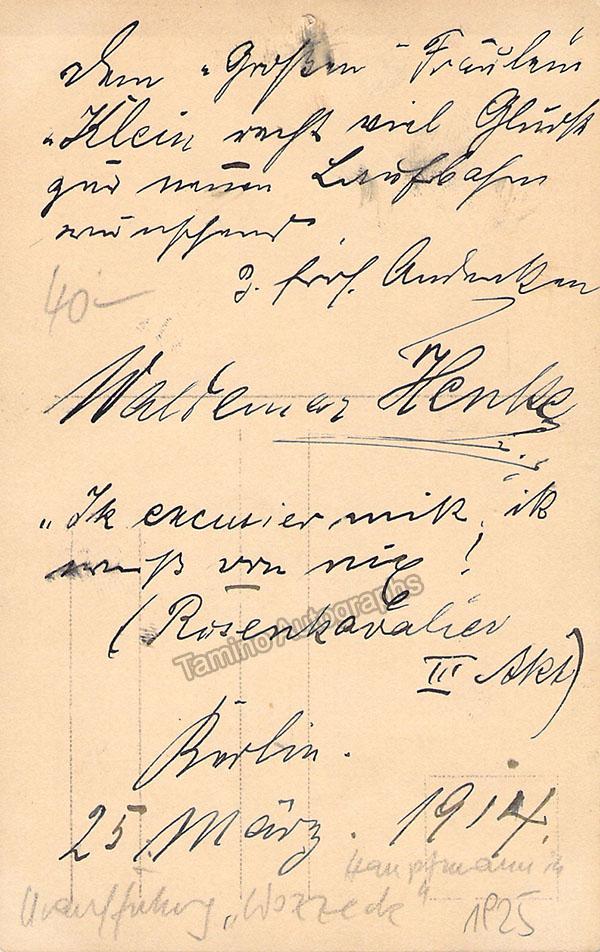 dem „Großen" Fräulein
„Klein" recht viel Glück
zur neuen Laufbahn
wünschend
z. frdl. Andenken
40.-
Waldemar Henke
„Ik excusier mik, ik
weiß von nix!
(Rosenkavalier
III Akt)
Tamino Autographs
Berlin.
25. März. 1914.
Hauptmann in
Uraufführung „Wozzeck"
1925